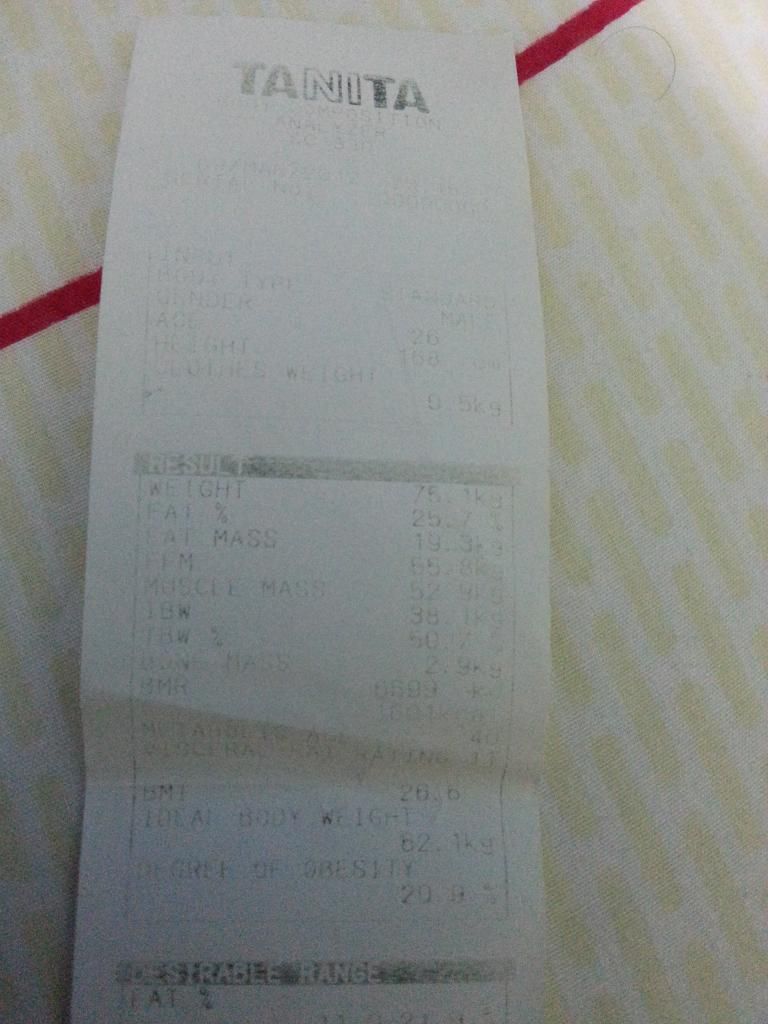 TANITA
COMPOSITION
ANALYZER
SERIAL NO.
INPUT
BODY TYPE STANDARD
GENDER MALE
AGE 26
HEIGHT 168 cm
CLOTHES WEIGHT
0.5kg
RESULT
WEIGHT 75.1kg
FAT % 25.7 %
FAT MASS 19.3kg
FFM 55.8kg
MUSCLE MASS 52.9kg
TBW 38.1kg
TBW % 50.7 %
BONE MASS 2.9kg
BMR kJ
kcal
METABOLIC AGE 40
VISCERAL FAT RATING 11
BMI 26.6
IDEAL BODY WEIGHT
62.1kg
DEGREE OF OBESITY
20.9 %
DESIRABLE RANGE
FAT %